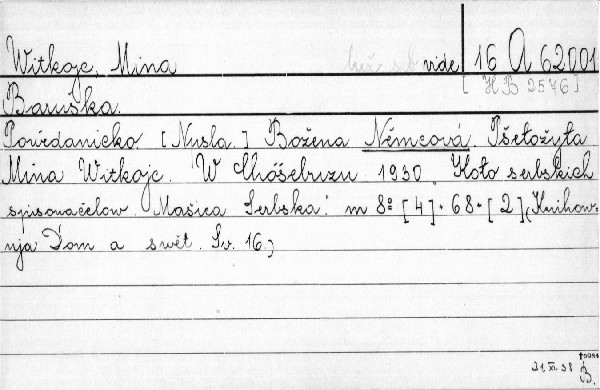 Witkojc, Mina vide 16 A 62001
[HB 2576]
Baruška.
Powědanicko [Nusla.] Božena Němcová. Pśełožyła
Mina Witkojc. W Chóśebuzu 1930. Koło serbskich
spisowaćelow. Maśica Serbska. m 8° [4]. 68. [2] (Knihow-
nja Dom a swět. Sv. 16.)
21.XI.38 B.